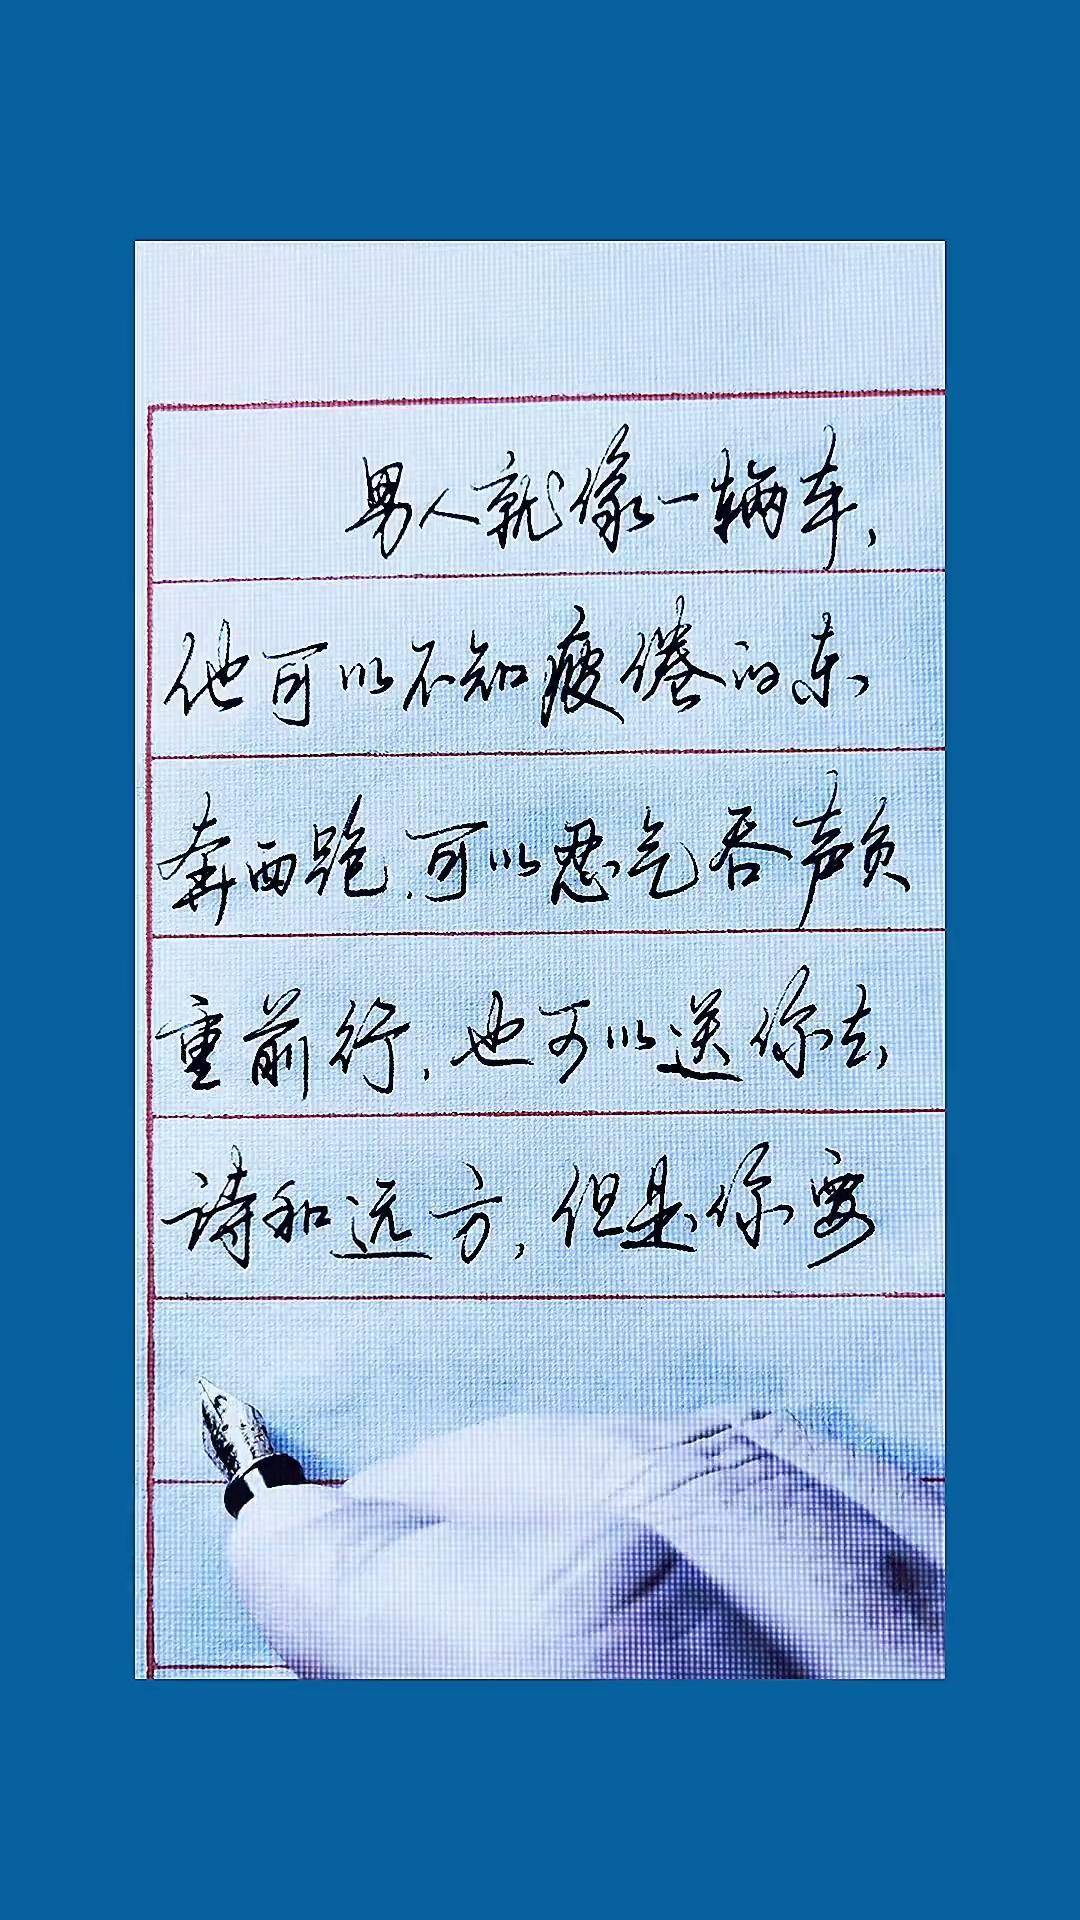 男人就像一辆车,
他可以不知疲倦的东
奔西跑,可以忍气吞声负
重前行,也可以送你去
诗和远方,但是你要